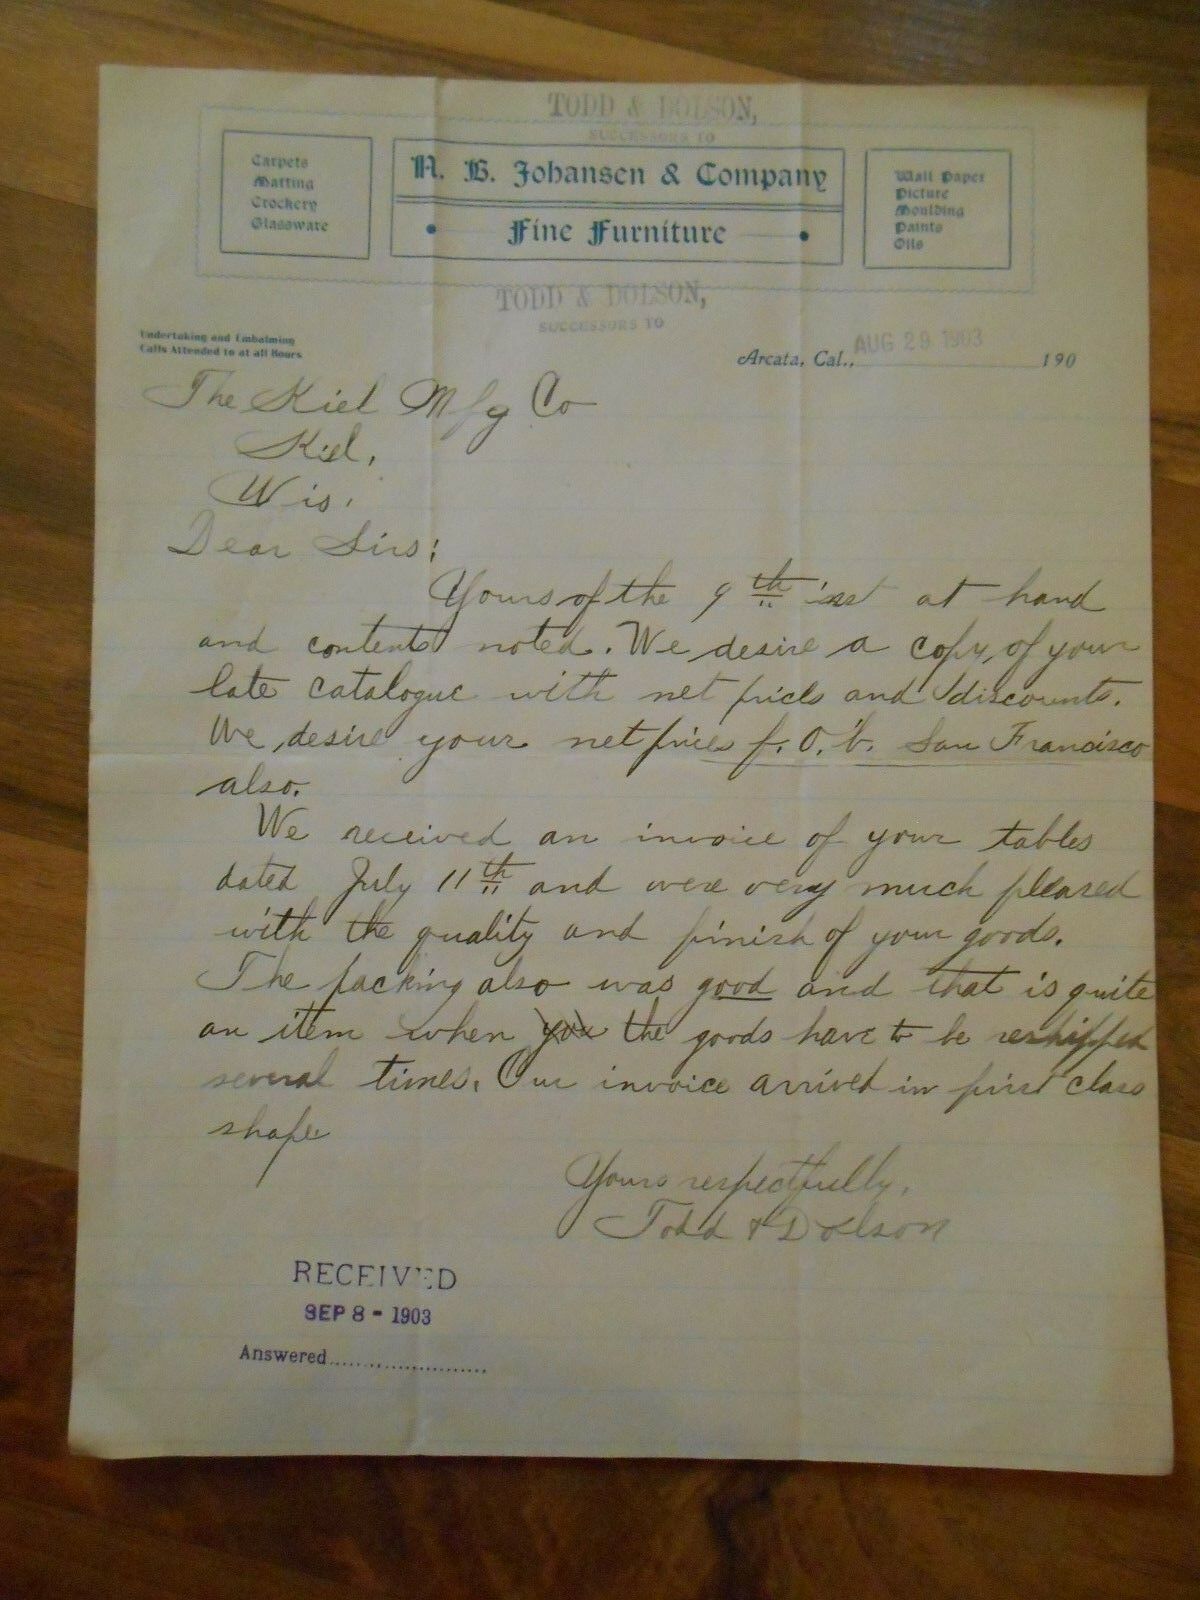 TODD & DOLSON,
SUCCESSORS TO
Carpets
Matting
Crockery
Glassware
A. B. Johansen & Company
Fine Furniture
Wall Paper
Picture
Moulding
Paints
Oils
TODD & DOLSON,
SUCCESSORS TO
Undertaking and Embalming
Calls Attended to at all Hours
Arcata, Cal., AUG 29 1903 190
The Kiel Mfg Co
Kiel,
Wis.
Dear Sirs:
Yours of the 9th inst at hand
and contents noted. We desire a copy of your
late catalogue with net prices and discounts.
We desire your net prices f. O. b. San Francisco
also.
We received an invoice of your tables
dated July 11th and were very much pleased
with the quality and finish of your goods.
The packing also was good and that is quite
an item when you the goods have to be reshipped
several times. Our invoice arrived in first class
shape
Yours respectfully,
Todd & Dolson
RECEIVED
SEP 8 - 1903
Answered